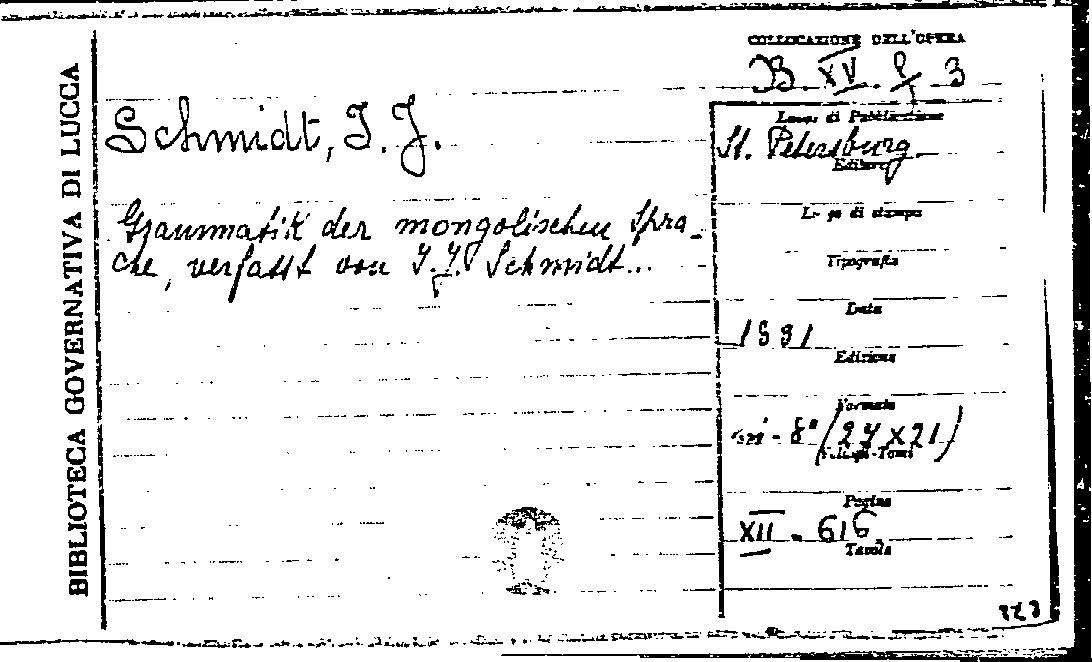 BIBLIOTECA GOVERNATIVA DI LUCCA
COLLOCAZIONE DELL'OPERA
B. XV. 3
Schmidt, I. J.
Grammatik der mongolischen Spra-
che, verfasst von I. J. Schmidt...
Luogo di Pubblicazione
St. Petersburg
Editore
Luogo di stampa
Tipografia
Data
1831
Edizione
Formato
in-8° (27 x 21)
Volumi-Tomi
Pagine
XII - 616
Tavole